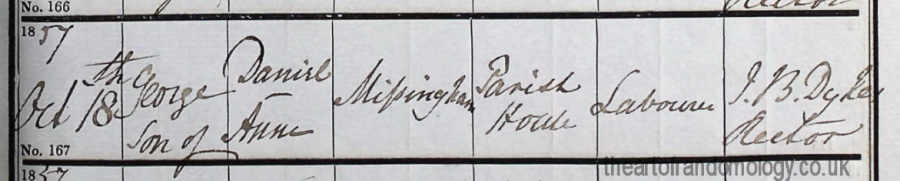 No. 166
Rector
1857
Oct 18th
George
son of
Daniel
Anne
Missingham
Parish
House
Labourer
J. B. Dykes
Rector
No. 167
1857
theartofrandomology.co.uk